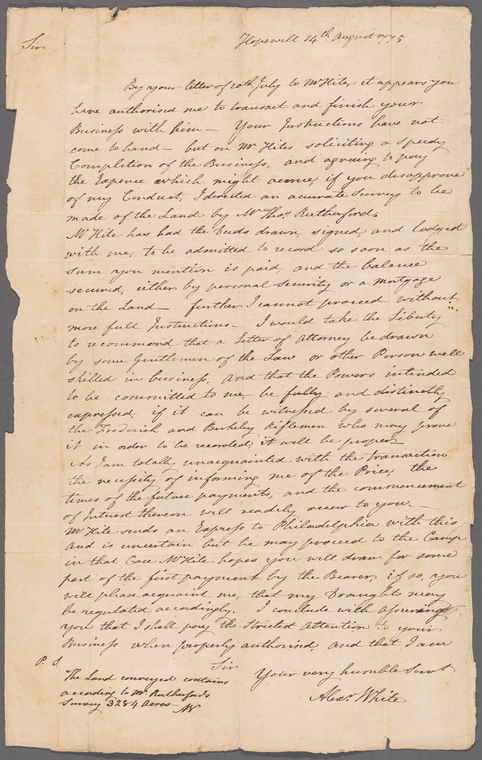 Hopewell 14th August 1775
Sir
By your letter of 20th July to Mr Hite, it appears you
have authorised me to transact and finish your
Business with him — Your Instructions have not
come to hand — but on Mr Hites soliciting a speedy
Completion of the Business, and agreeing to pay
the Expence which might accrue, if you disapprove
of my Conduct, I directed an accurate Survey to be
made of the Land by Mr Thos. Rutherford.
Mr Hite has had the Deeds drawn, signed, and lodged
with me, to be admitted to record so soon as the
Sum you mention is paid, and the balance
secured, either by personal security or a Mortgage
on the Land — further I cannot proceed without
more full Instructions — I would take the Liberty
to recommend that a Letter of Attorney be drawn
by some Gentlemen of the Law or other Person well
skilled in business, And that the Powers intended
to be committed to me, be fully and distinctly
expressed, if it can be witnessed by several of
the Frederick and Berkeley Riflemen who may prove
it in order to be recorded, it will be proper —
As I am totally unacquainted with the transaction
the necessity of informing me of the Price, the
times of the future payments, and the commencement
of Interest thereon will readily occur to you
Mr Hite sends an Express to Philadelphia with this
and is uncertain but he may proceed to the Camp
in that Case Mr Hite hopes you will draw for some
part of the first payment by the Bearer, if so, you
will please acquaint me, that my Draughts may
be regulated accordingly. I conclude with assuring
you that I shall pay the Strictest Attention to your
Business when properly authorised and that I am
Sir
Your very humble Servt
Alexr White
P. S.
The Land conveyed contains
according to Mr Rutherfords
Survey 3284 Acres —